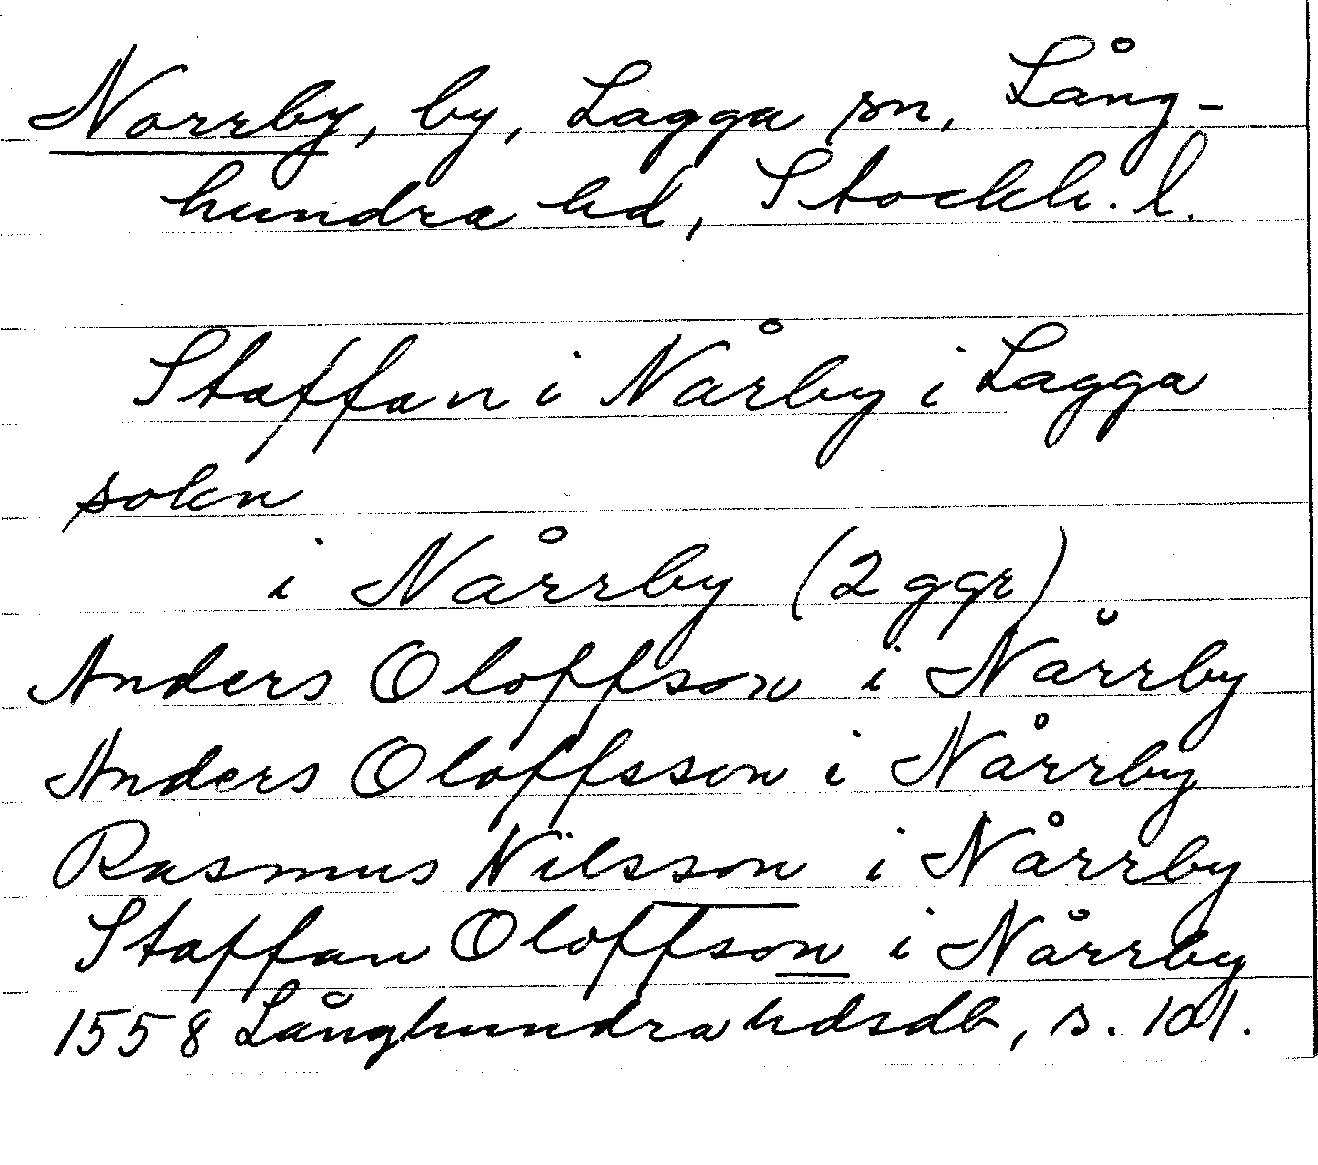 Norrby, by, Lagga sn, Lång-
hundra hd, Stockh. l.
Staffan i Nårby i Lagga
sokn
i Nårrby (2 ggr)
Anders Oloffson i Nårrby
Anders Oloffsson i Nårrby
Rasmus Nilsson i Nårrby
Staffan Oloffson i Nårrby
1558 Långhundra hdsdb, s. 101.